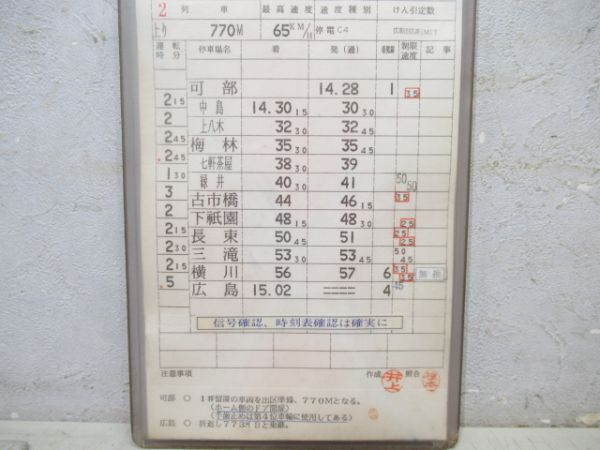 2 列車 最高速度 速度種別 けん引定数
上り 770M 65KM/H 停電C4
運転時分 停車場名 着 発(通) 着発線 制限速度 記事
可部 14.28 1 35
2 15
中島 14.30 15 30 30
2
上八木 32 30 32 45
2 45
梅林 35 30 35 45
2 45
七軒茶屋 38 30 39
1 30
緑井 40 30 41 50 50
3
古市橋 44 46 15 35
2
下祇園 48 15 48 30 25
2 15
長束 50 45 51 25 25
2 30
三滝 53 30 53 45 50 45
2 15
横川 56 57 6 35 35
5
広島 15.02 ==== 4 45
信号確認、時刻表確認は確実に
注意事項 作成 照合
可部 ○ 1番留置の車両を出区準備、770Mとなる。
(ホーム側のドア開扉)
(手歯止めは第4位車輪に使用してある)
広島 ○ 折返し773M